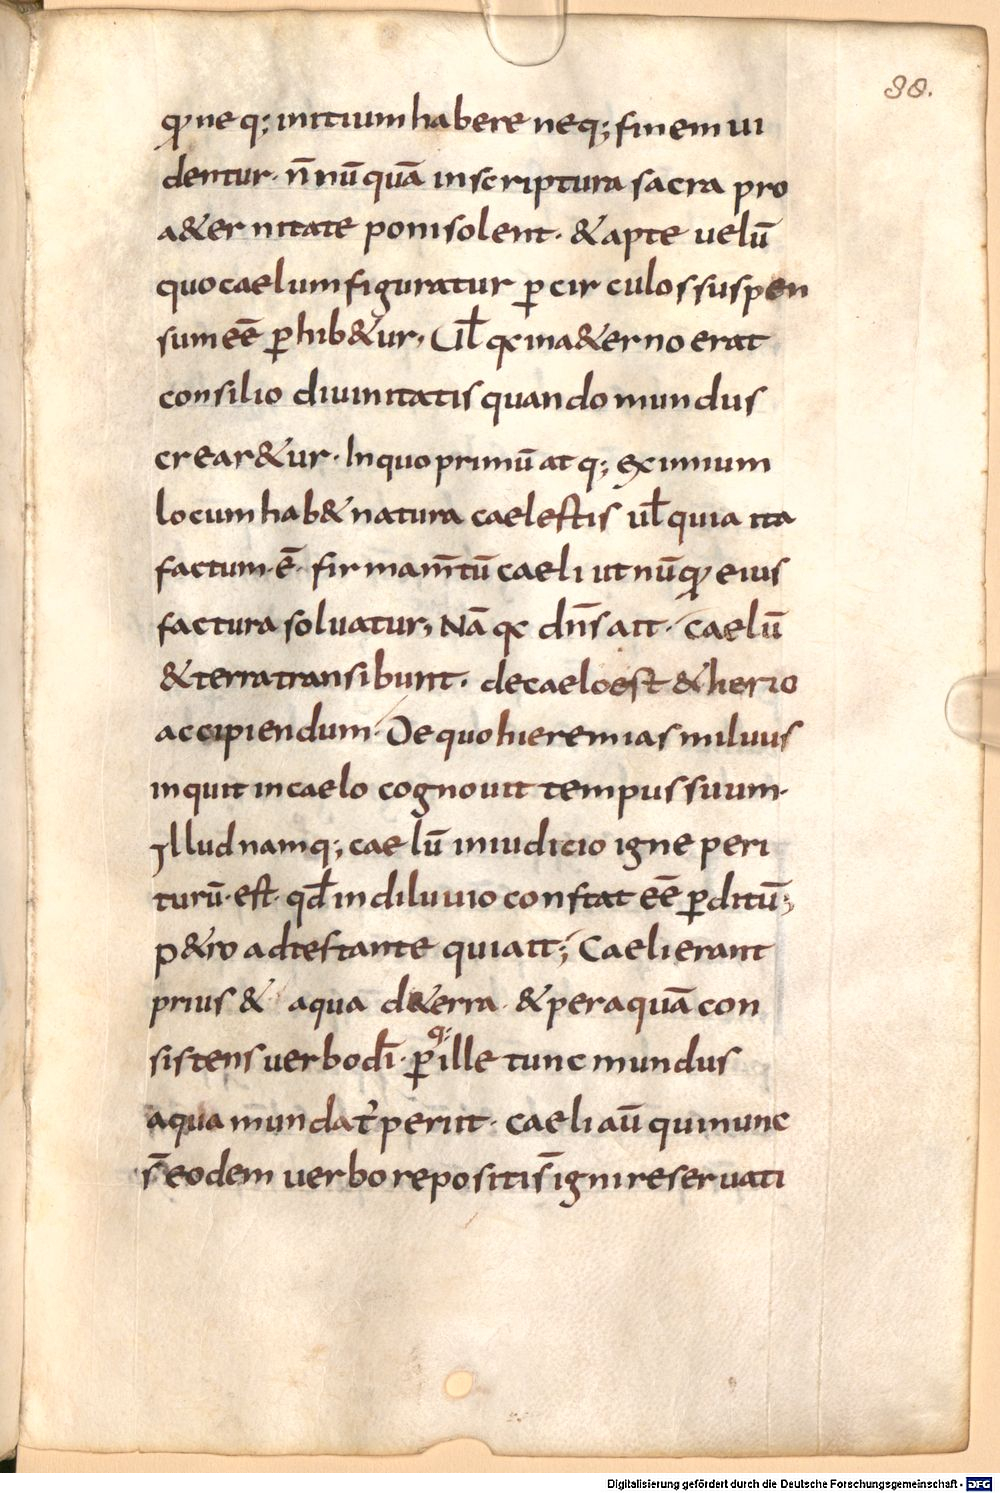 38.
ꝙ neq; initium habere neq; finem ui
dentur· n̄nūquā in scriptura sacra pro
a&ernitate poni solent· & apte uelū
quo caelum figuratur ꝑ circulos suspen
sum eē ꝑhib&ur, Ul̄ qᷓ in a&erno erat
consilio diuinitatis quando mundus
crear&ur· In quo primū atq; eximium
locum hab& natura caelestis ul̄ quia ita
factum·ē· firmam̄tū caeli ut nūꝙ eius
factura soluatur, Nā qᷓ dn̄s ait· caelū
& terra transibunt· de caelo est &herio
accipiendum· De quo hieremias miluus
inquit in caelo cognouit tempus suum·
Illud namq; caelū in iudicio igne peri
turū·est· qd̄ in diluuio constat eē ꝑditū;
P&ro adtestante qui ait; Caeli erant
prius & aqua d&erra· & per aquā con
sistens uerbo dī· ꝑ q; ille tunc mundus
aqua mundat᷑ periit· caeli aū qui nunc
s̄ eodem uerbo repositi s̄ igni reseruati
Digitalisierung gefördert durch die Deutsche Forschungsgemeinschaft - DFG